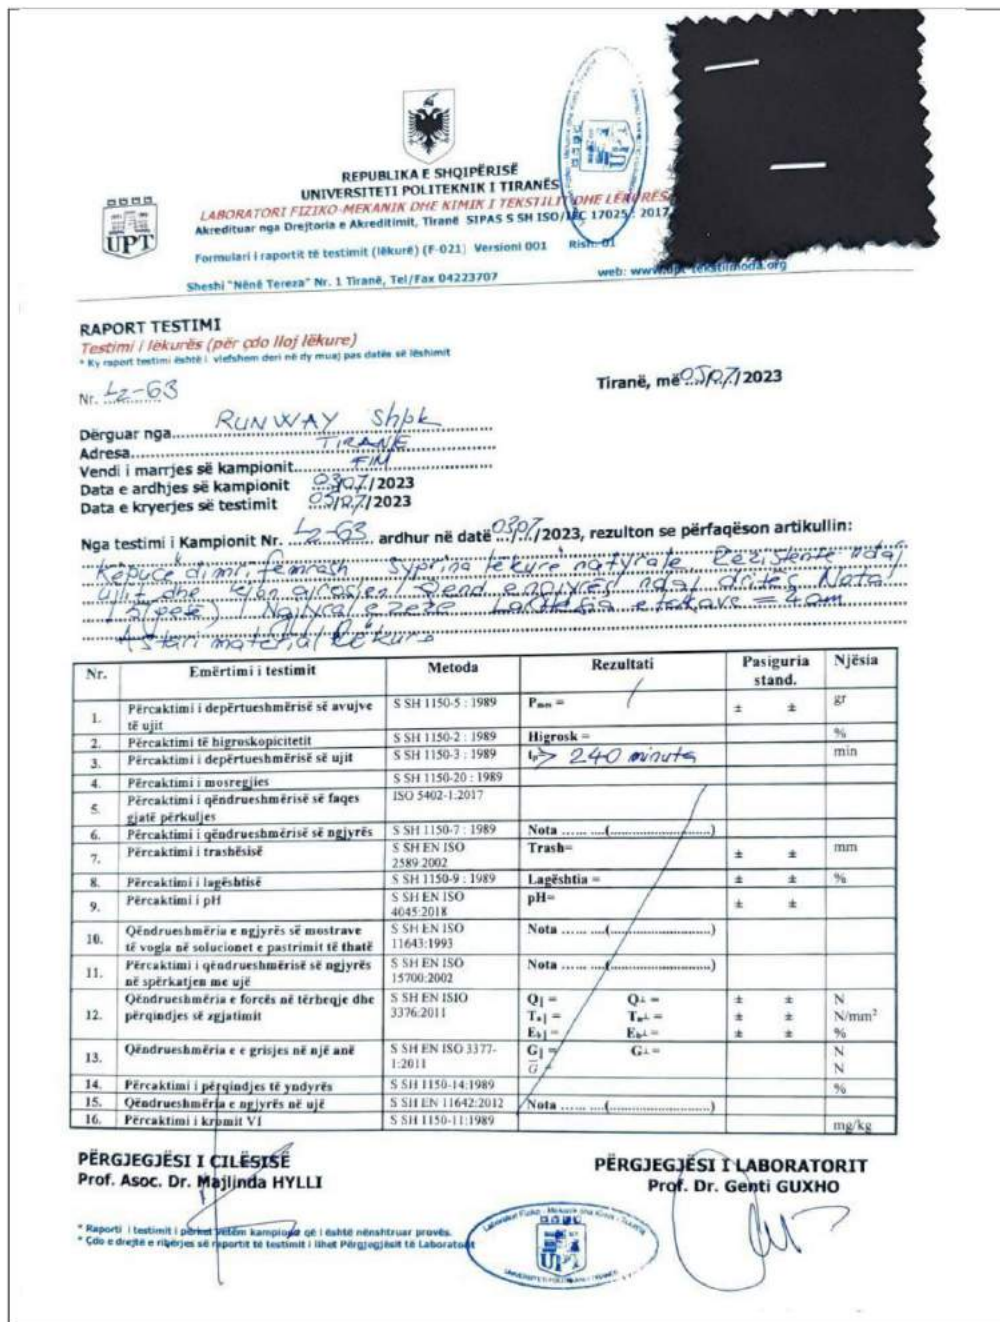 REPUBLIKA E SHQIPËRISË
UNIVERSITETI POLITEKNIK I TIRANËS
LABORATORI FIZIKO-MEKANIK DHE KIMIK I TEKSTILIT DHE LËKURËS
Akredituar nga Drejtoria e Akreditimit, Tiranë SIPAS S SH ISO/IEC 17025 : 2017
UPT
Formulari i raportit të testimit (lëkurë) (F-021) Versioni 001 Rish. 01
Sheshi "Nënë Tereza" Nr. 1 Tiranë, Tel/Fax 04223707 web: www.upt-tekstilmoda.org
RAPORT TESTIMI
Testimi i lëkurës (për çdo lloj lëkure)
* Ky raport testimi është i vlefshem deri në dy muaj pas datës së lëshimit
Nr. Lz-63 Tiranë, më 05/07/2023
Dërguar nga RUNWAY Shpk
Adresa TIRANE
Vendi i marrjes së kampionit FIM
Data e ardhjes së kampionit 03/07/2023
Data e kryerjes së testimit 05/07/2023
Nga testimi i Kampionit Nr. Lz-63 ardhur në datë 03/07/2023, rezulton se përfaqëson artikullin:
Këpucë dimri femrash Syprina lëkurë natyrale Rezistente ndaj
ujit dhe ngjyrës ndaj dritës Nota
5 Ngjyra e zezë e takave = 4cm
Astari material lëkure
Nr. Emërtimi i testimit Metoda Rezultati Pasiguria stand. Njësia
1. Përcaktimi i depërtueshmërisë së avujve të ujit S SH 1150-5 : 1989 Pmm = ± ± gr
2. Përcaktimi të higroskopicitetit S SH 1150-2 : 1989 Higrosk = %
3. Përcaktimi i depërtueshmërisë së ujit S SH 1150-3 : 1989 tp= > 240 minuta min
4. Përcaktimi i mosregjies S SH 1150-20 : 1989
5. Përcaktimi i qëndrueshmërisë së faqes gjatë përkuljes ISO 5402-1:2017
6. Përcaktimi i qëndrueshmërisë së ngjyrës S SH 1150-7 : 1989 Nota ...... ....(........................)
7. Përcaktimi i trashësisë S SH EN ISO 2589:2002 Trash= ± ± mm
8. Përcaktimi i lagështisë S SH 1150-9 : 1989 Lagështia = ± ± %
9. Përcaktimi i pH S SH EN ISO 4045:2018 pH= ± ±
10. Qëndrueshmëria e ngjyrës së mostrave të vogla në solucionet e pastrimit të thatë S SH EN ISO 11643:1993 Nota ...... ....(........................)
11. Përcaktimi i qëndrueshmërisë së ngjyrës në spërkatjen me ujë S SH EN ISO 15700:2002 Nota ...... ....(........................)
12. Qëndrueshmëria e forcës në tërheqje dhe përqindjes së zgjatimit S SH EN ISIO 3376:2011 Q| = Q⊥ = ± ± N
Tn| = Tn⊥ = ± ± N/mm²
Eb| = Eb⊥ = ± ± %
13. Qëndrueshmëria e e grisjes në një anë S SH EN ISO 3377-1:2011 G| = G⊥ = N
G = N
14. Përcaktimi i përqindjes të yndyrës S SH 1150-14:1989 %
15. Qëndrueshmëria e ngjyrës në ujë S SH EN 11642:2012 Nota ...... ....(........................)
16. Përcaktimi i kromit VI S SH 1150-11:1989 mg/kg
PËRGJEGJËSI I CILËSISË PËRGJEGJËSI I LABORATORIT
Prof. Asoc. Dr. Majlinda HYLLI Prof. Dr. Genti GUXHO
* Raporti i testimit i përket vetëm kampionit që i është nënshtruar provës.
* Çdo e drejtë e ribërjes së raportit të testimit i lihet Përgjegjësit të Laboratorit
UPT